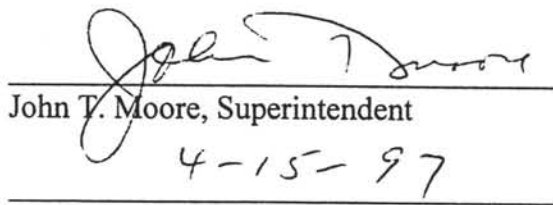 John T Moore
John T. Moore, Superintendent
4-15-97